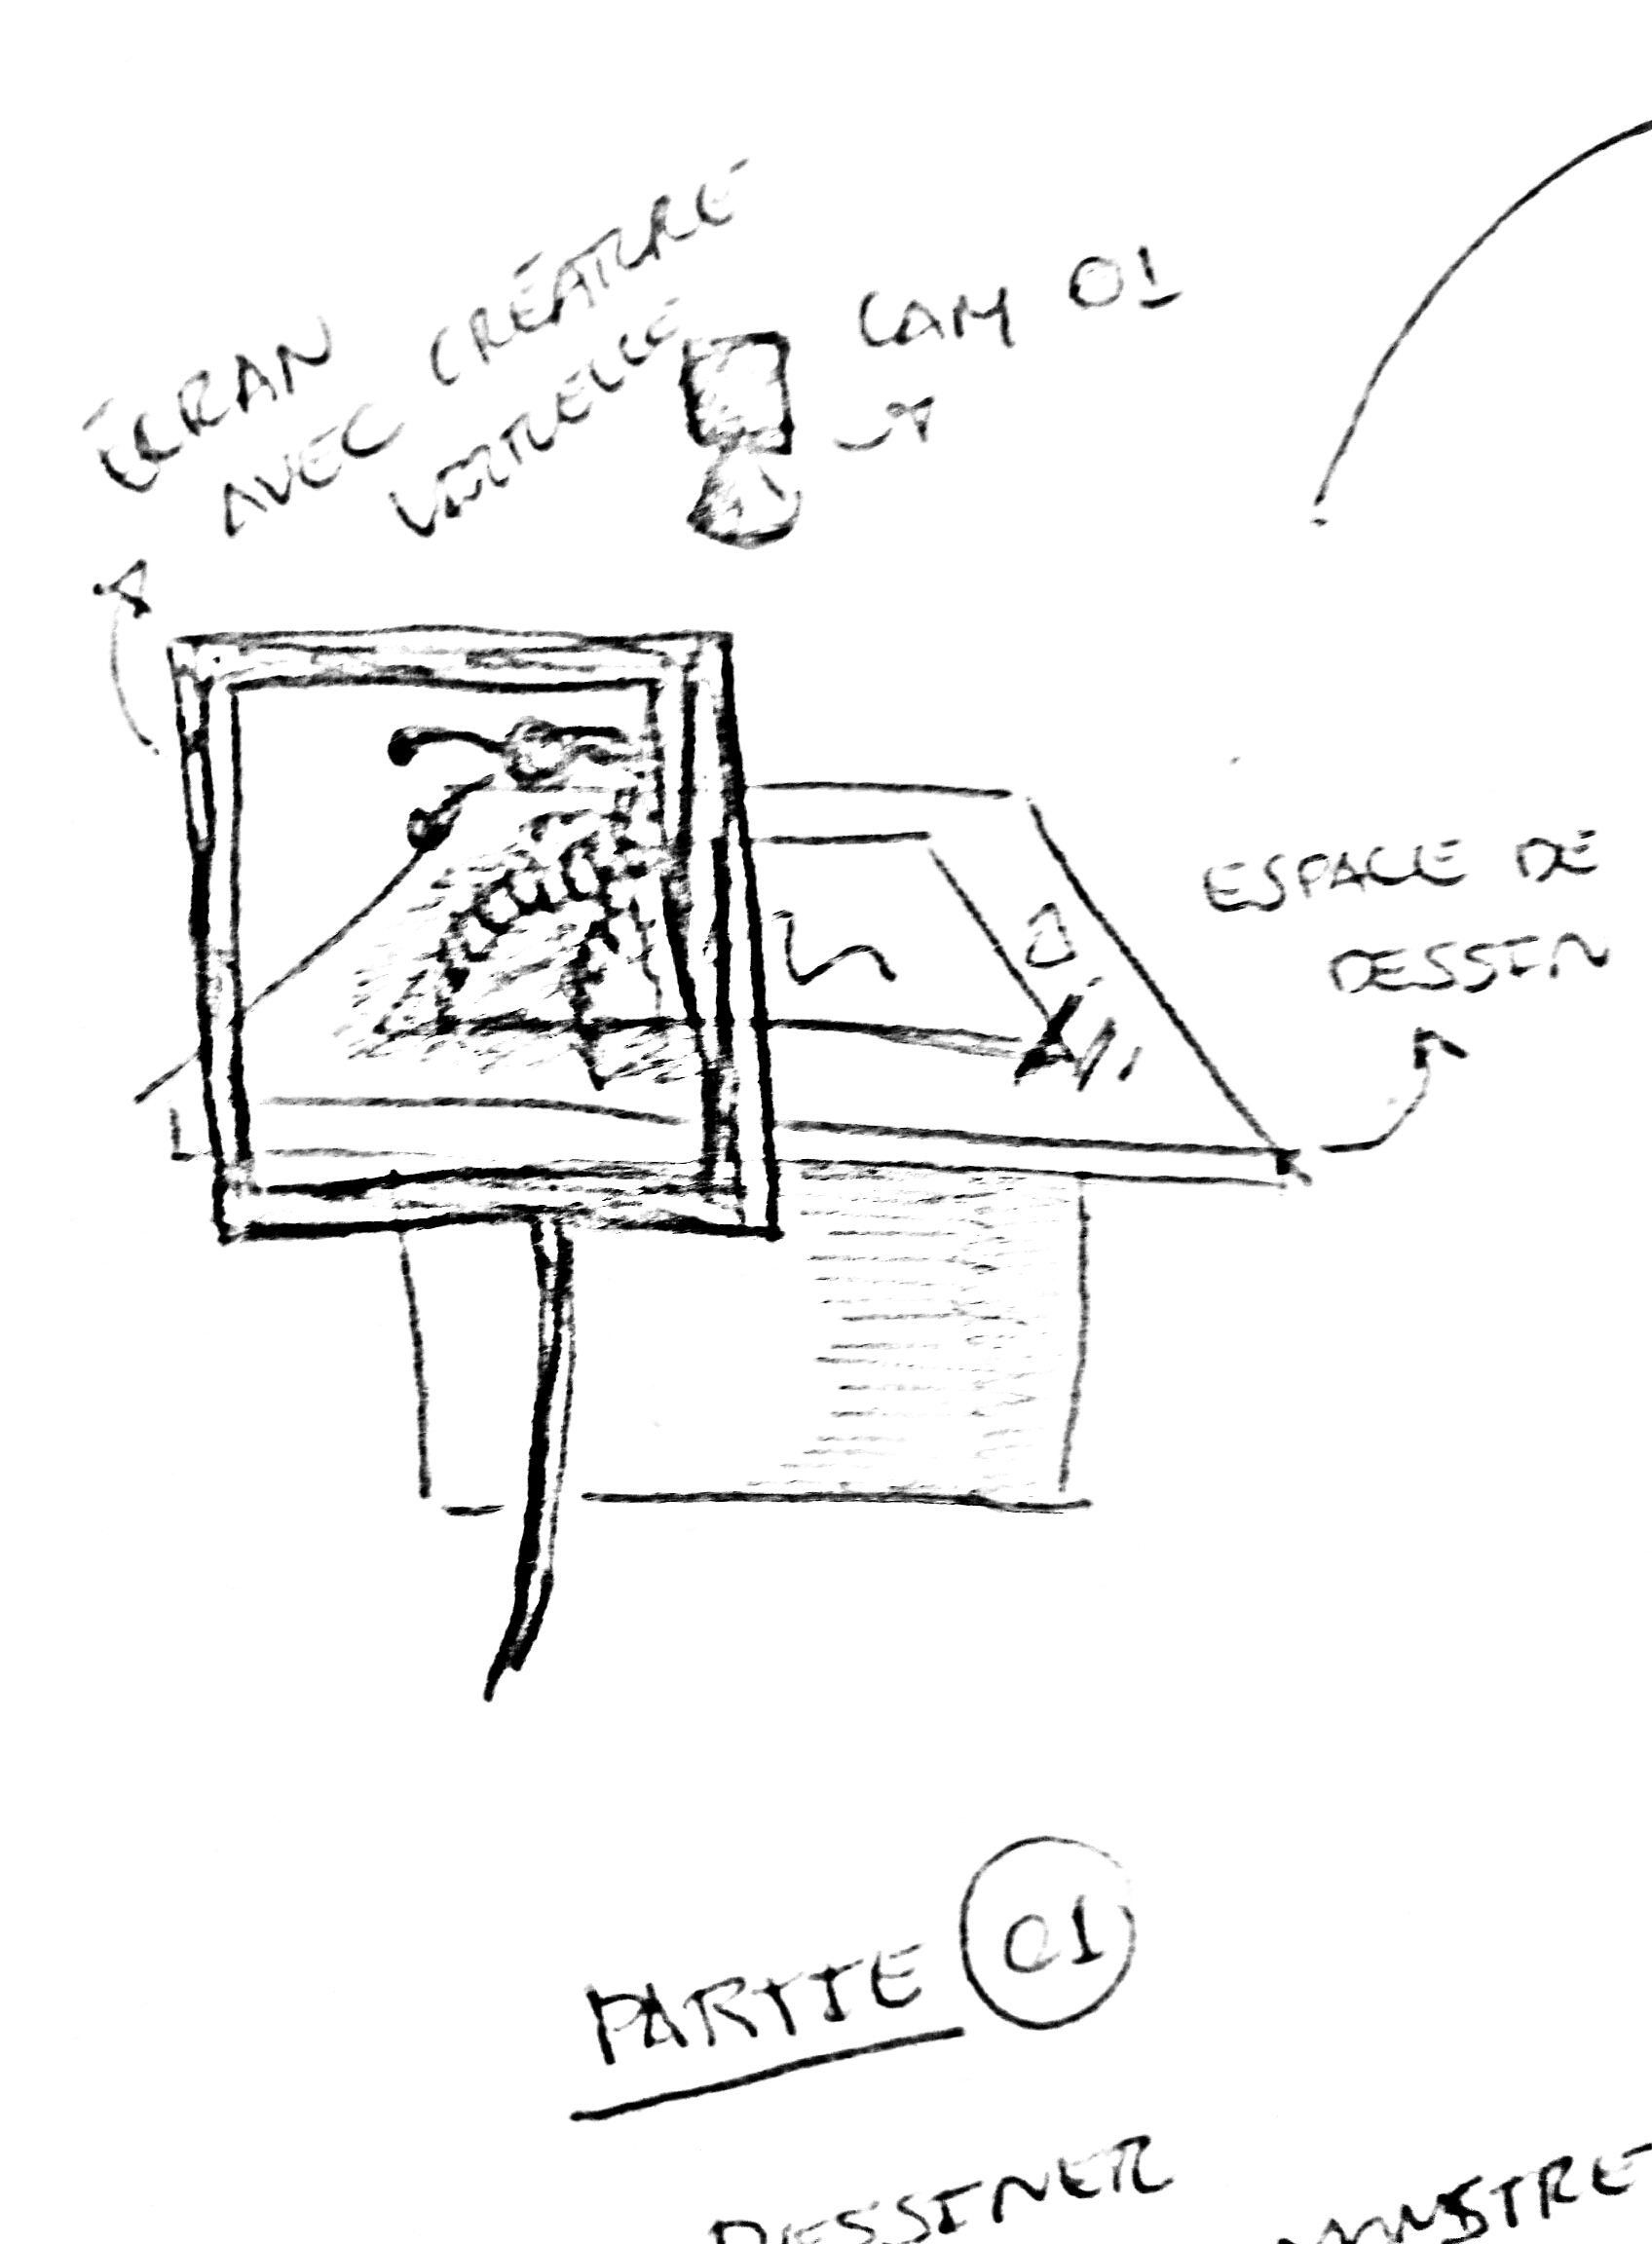 ÉCRAN
AVEC CRÉATURE
VIRTUELLE
CAM 01
ESPACE DE
DESSIN
PARTIE 01
DESSINER
MONSTRE